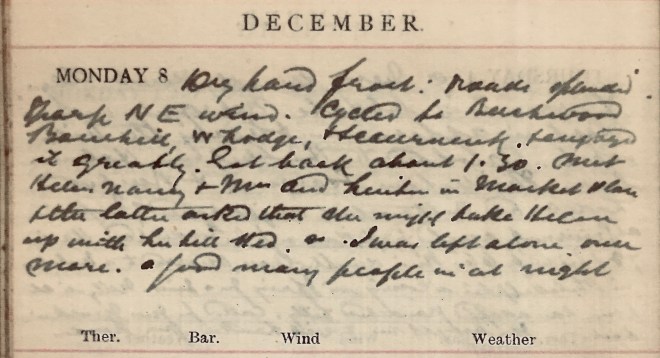 DECEMBER.
MONDAY 8 Dry hard frost: Roads splendid
Sharp N E wind. Cycled to
& enjoyed
it greatly. Got back about 1.30. Met
Helen Nancy & Mrs in Market Place
& the latter asked that she might take Helen
up with her till Wed. I was left alone once
more. a good many people in at night
Ther. Bar. Wind Weather